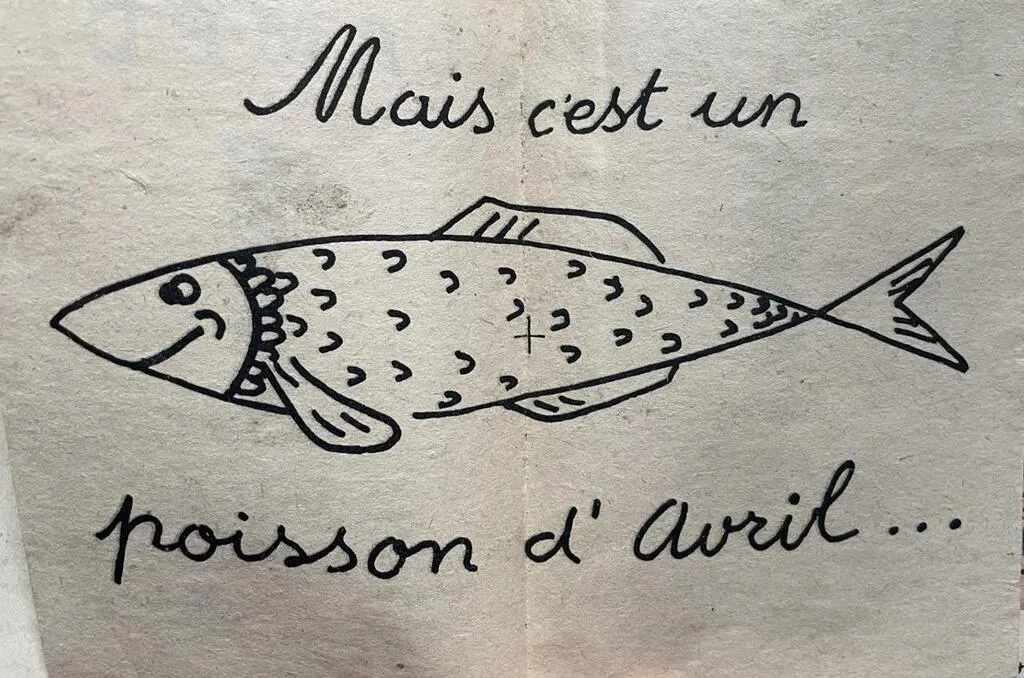 Mais c'est un
poisson d'Avril...